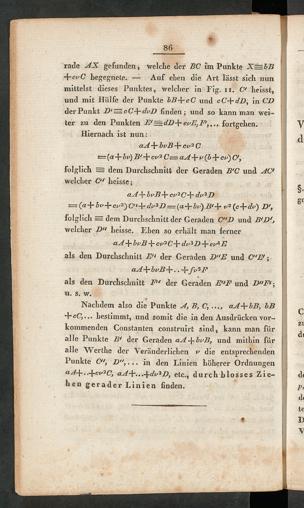 86
rade AX gefunden, welche der BC im Punkte X≡bB
+cνC begegnete. — Auf eben die Art lässt sich nun
mittelst dieses Punktes, welcher in Fig. 11. C' heisst,
und mit Hülfe der Punkte bB+cC und cC+dD, in CD
der Punkt D'≡cC+dνD finden; und so kann man wei-
ter zu den Punkten E'≡dD+eνE, F',... fortgehen.
Hiernach ist nun:
aA+bνB+cν²C
=(a+bν)B'+cν²C=aA+ν(b+cν)C',
folglich ≡ dem Durchschnitt der Geraden B'C und AC'
welcher C'' heisse;
aA+bνB+cν²C+dν³D
=(a+bν+cν²)C''+dν³D=(a+bν)B'+ν²(c+dν) D',
folglich ≡ dem Durchschnitt der Geraden C''D und B'D',
welcher D'' heisse. Eben so erhält man ferner
aA+bνB+cν²C+dν³D+eν⁴E
als den Durchschnitt E'' der Geraden D''E und C''E';
aA+bνB+..+fν⁵F
als den Durchschnitt F'' der Geraden E''F und D''F';
u. s. w.
Nachdem also die Punkte A, B, C,..., aA+bB, bB
+cC,... bestimmt, und somit die in den Ausdrücken vor-
kommenden Constanten construirt sind, kann man für
alle Punkte B' der Geraden aA+bνB, und mithin für
alle Werthe der Veränderlichen ν die entsprechenden
Punkte C'', D'',... in den Linien höherer Ordnungen
aA+..+cν²C, aA+...+dν³D, etc., durch blosses Zie-
hen gerader Linien finden.